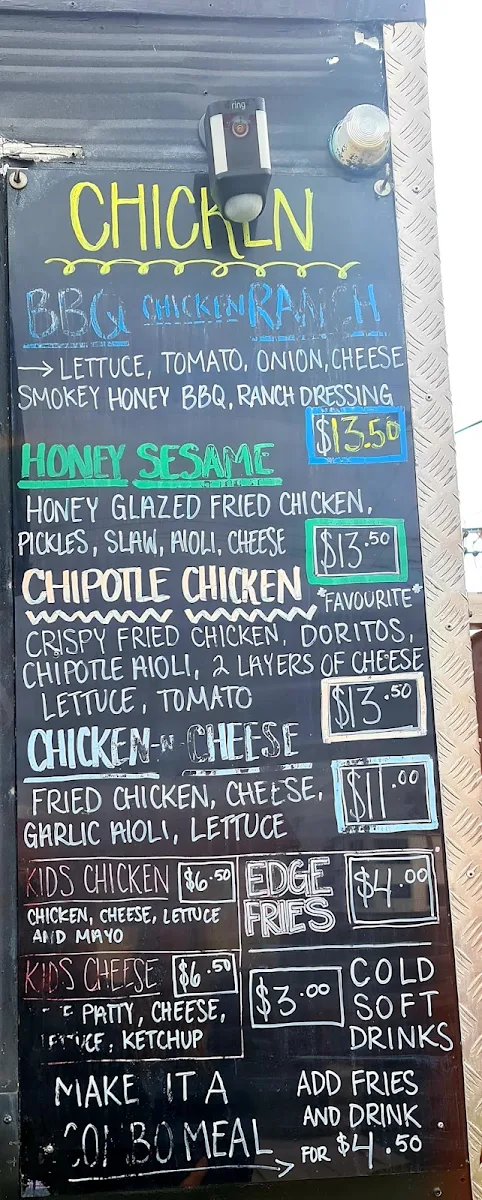 ring
CHICKEN
BBQ CHICKEN RANCH
→ LETTUCE, TOMATO, ONION, CHEESE
SMOKEY HONEY BBQ, RANCH DRESSING
$13.50
HONEY SESAME
HONEY GLAZED FRIED CHICKEN,
PICKLES, SLAW, AIOLI, CHEESE
$13.50
CHIPOTLE CHICKEN
*FAVOURITE*
CRISPY FRIED CHICKEN, DORITOS,
CHIPOTLE AIOLI, 2 LAYERS OF CHEESE
LETTUCE, TOMATO
$13.50
CHICKEN N CHEESE
FRIED CHICKEN, CHEESE,
GARLIC AIOLI, LETTUCE
$11.00
KIDS CHICKEN $6.50
CHICKEN, CHEESE, LETTUCE
AND MAYO
EDGE
FRIES
$4.00
KIDS CHEESE $6.50
PATTY, CHEESE,
KETCHUP
$3.00
COLD
SOFT
DRINKS
MAKE IT A
COMBO MEAL →
ADD FRIES
AND DRINK
FOR $4.50